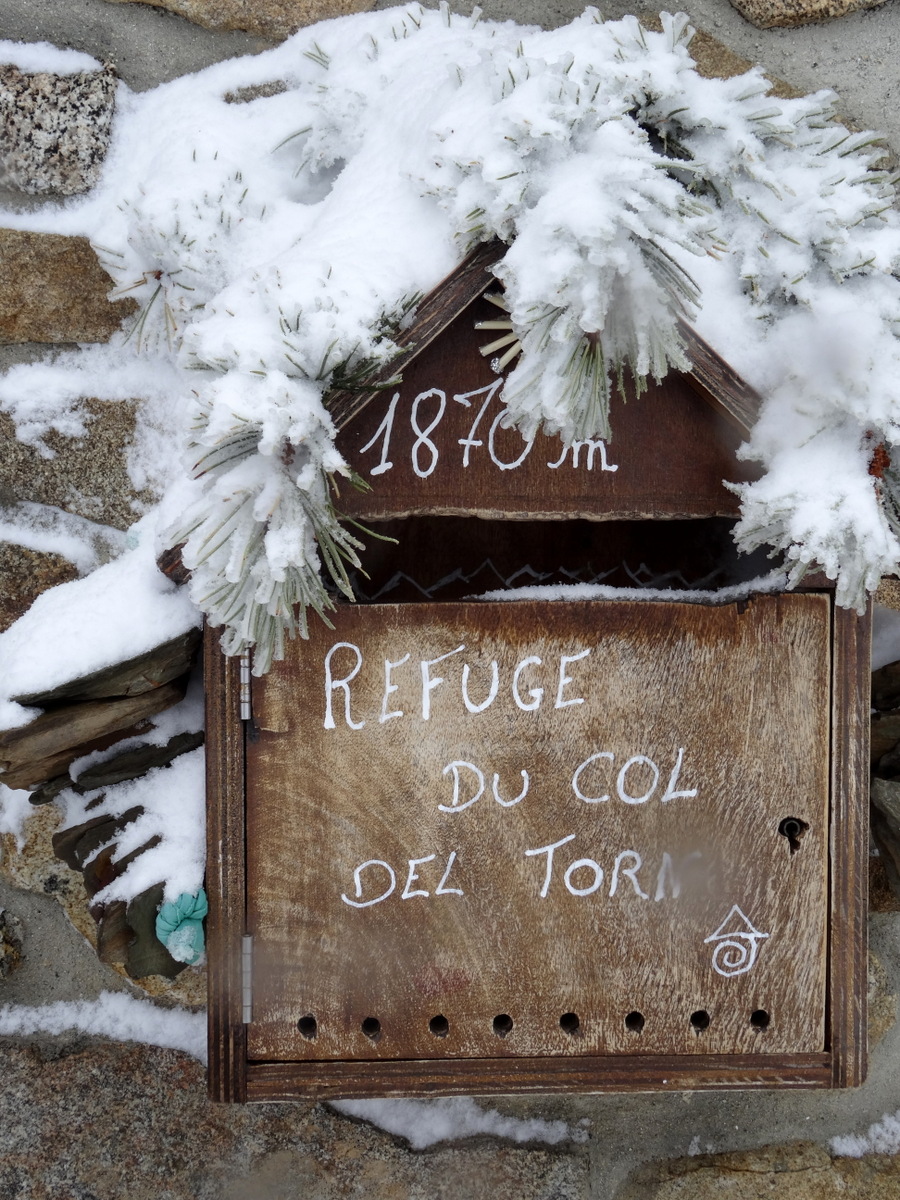 1870 m
REFUGE
DU COL
DEL TORN